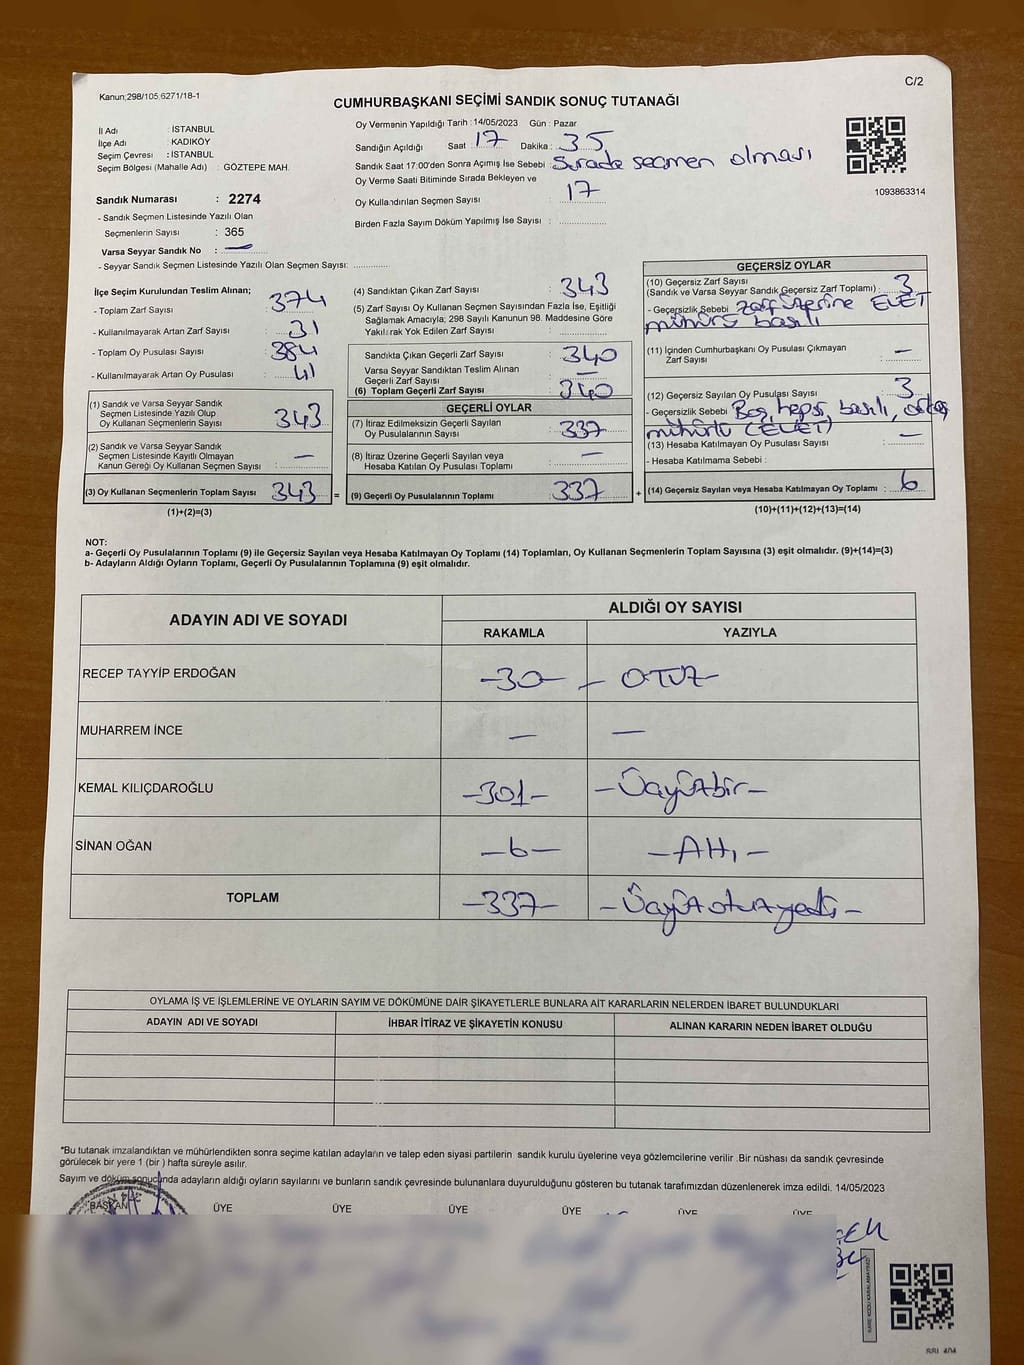 C/2
Kanun;298/105;6271/18-1
CUMHURBAŞKANI SEÇİMİ SANDIK SONUÇ TUTANAĞI
İl Adı : İSTANBUL
İlçe Adı : KADIKÖY
Seçim Çevresi : İSTANBUL
Seçim Bölgesi (Mahalle Adı) : GÖZTEPE MAH.
Sandık Numarası : 2274
- Sandık Seçmen Listesinde Yazılı Olan
Seçmenlerin Sayısı : 365
Varsa Seyyar Sandık No : —
- Seyyar Sandık Seçmen Listesinde Yazılı Olan Seçmen Sayısı:
Oy Vermenin Yapıldığı Tarih : 14/05/2023 Gün : Pazar
Sandığın Açıldığı Saat : 17 Dakika : 35
Sandık Saat 17:00'den Sonra Açımış İse Sebebi : Sırada seçmen olması
Oy Verme Saati Bitiminde Sırada Bekleyen ve
Oy Kullandırılan Seçmen Sayısı : 17
Birden Fazla Sayım Döküm Yapılmış İse Sayısı :
1093863314
İlçe Seçim Kurulundan Teslim Alınan;
- Toplam Zarf Sayısı : 374
- Kullanılmayarak Artan Zarf Sayısı : 31
- Toplam Oy Pusulası Sayısı : 384
- Kullanılmayarak Artan Oy Pusulası : 41
(1) Sandık ve Varsa Seyyar Sandık
Seçmen Listesinde Yazılı Olup
Oy Kullanan Seçmenlerin Sayısı : 343
(2) Sandık ve Varsa Seyyar Sandık
Seçmen Listesinde Kayıtlı Olmayan
Kanun Gereği Oy Kullanan Seçmen Sayısı : —
(3) Oy Kullanan Seçmenlerin Toplam Sayısı : 343 =
(1)+(2)=(3)
(4) Sandıktan Çıkan Zarf Sayısı : 343
(5) Zarf Sayısı Oy Kullanan Seçmen Sayısından Fazla İse, Eşitliği
Sağlamak Amacıyla; 298 Sayılı Kanunun 98. Maddesine Göre
Yakılırak Yok Edilen Zarf Sayısı :
Sandıkta Çıkan Geçerli Zarf Sayısı : 340
Varsa Seyyar Sandıktan Teslim Alınan
Geçerli Zarf Sayısı : —
(6) Toplam Geçerli Zarf Sayısı : 340
GEÇERLİ OYLAR
(7) İtiraz Edilmeksizin Geçerli Sayılan
Oy Pusulalarının Sayısı : 337
(8) İtiraz Üzerine Geçerli Sayılan veya
Hesaba Katılan Oy Pusulası Toplamı : —
(9) Geçerli Oy Pusulalarının Toplamı : 337 +
GEÇERSİZ OYLAR
(10) Geçersiz Zarf Sayısı
(Sandık ve Varsa Seyyar Sandık Geçersiz Zarf Toplamı) : 3
- Geçersizlik Sebebi : zarf üzerine EVET
mühürü basılı
(11) İçinden Cumhurbaşkanı Oy Pusulası Çıkmayan
Zarf Sayısı : —
(12) Geçersiz Sayılan Oy Pusulası Sayısı : 3
- Geçersizlik Sebebi : Boş, hepsi basılı,
mühürlü (EVET)
(13) Hesaba Katılmayan Oy Pusulası Sayısı : —
- Hesaba Katılmama Sebebi :
(14) Geçersiz Sayılan veya Hesaba Katılmayan Oy Toplamı : 6
(10)+(11)+(12)+(13)=(14)
NOT:
a- Geçerli Oy Pusulalarının Toplamı (9) ile Geçersiz Sayılan veya Hesaba Katılmayan Oy Toplamı (14) Toplamları, Oy Kullanan Seçmenlerin Toplam Sayısına (3) eşit olmalıdır. (9)+(14)=(3)
b- Adayların Aldığı Oyların Toplamı, Geçerli Oy Pusulalarının Toplamına (9) eşit olmalıdır.
ADAYIN ADI VE SOYADI ALDIĞI OY SAYISI
RAKAMLA YAZIYLA
RECEP TAYYİP ERDOĞAN -30- - OTUZ-
MUHARREM İNCE — —
KEMAL KILIÇDAROĞLU -301- -Üçyüzbir-
SİNAN OĞAN -6- -Altı-
TOPLAM -337- -Üçyüzotuzyedi-
OYLAMA İŞ VE İŞLEMLERİNE VE OYLARIN SAYIM VE DÖKÜMÜNE DAİR ŞİKAYETLERLE BUNLARA AİT KARARLARIN NELERDEN İBARET BULUNDUKLARI
ADAYIN ADI VE SOYADI İHBAR İTİRAZ VE ŞİKAYETİN KONUSU ALINAN KARARIN NEDEN İBARET OLDUĞU
*Bu tutanak imzalandıktan ve mühürlendikten sonra seçime katılan adayların ve talep eden siyasi partilerin sandık kurulu üyelerine veya gözlemcilerine verilir .Bir nüshası da sandık çevresinde
görülecek bir yere 1 (bir ) hafta süreyle asılır.
Sayım ve döküm sonucunda adayların aldığı oyların sayılarını ve bunların sandık çevresinde bulunanlara duyurulduğunu gösteren bu tutanak tarafımızdan düzenlenerek imza edildi. 14/05/2023
BAŞKAN ÜYE ÜYE ÜYE ÜYE ÜYE ÜYE